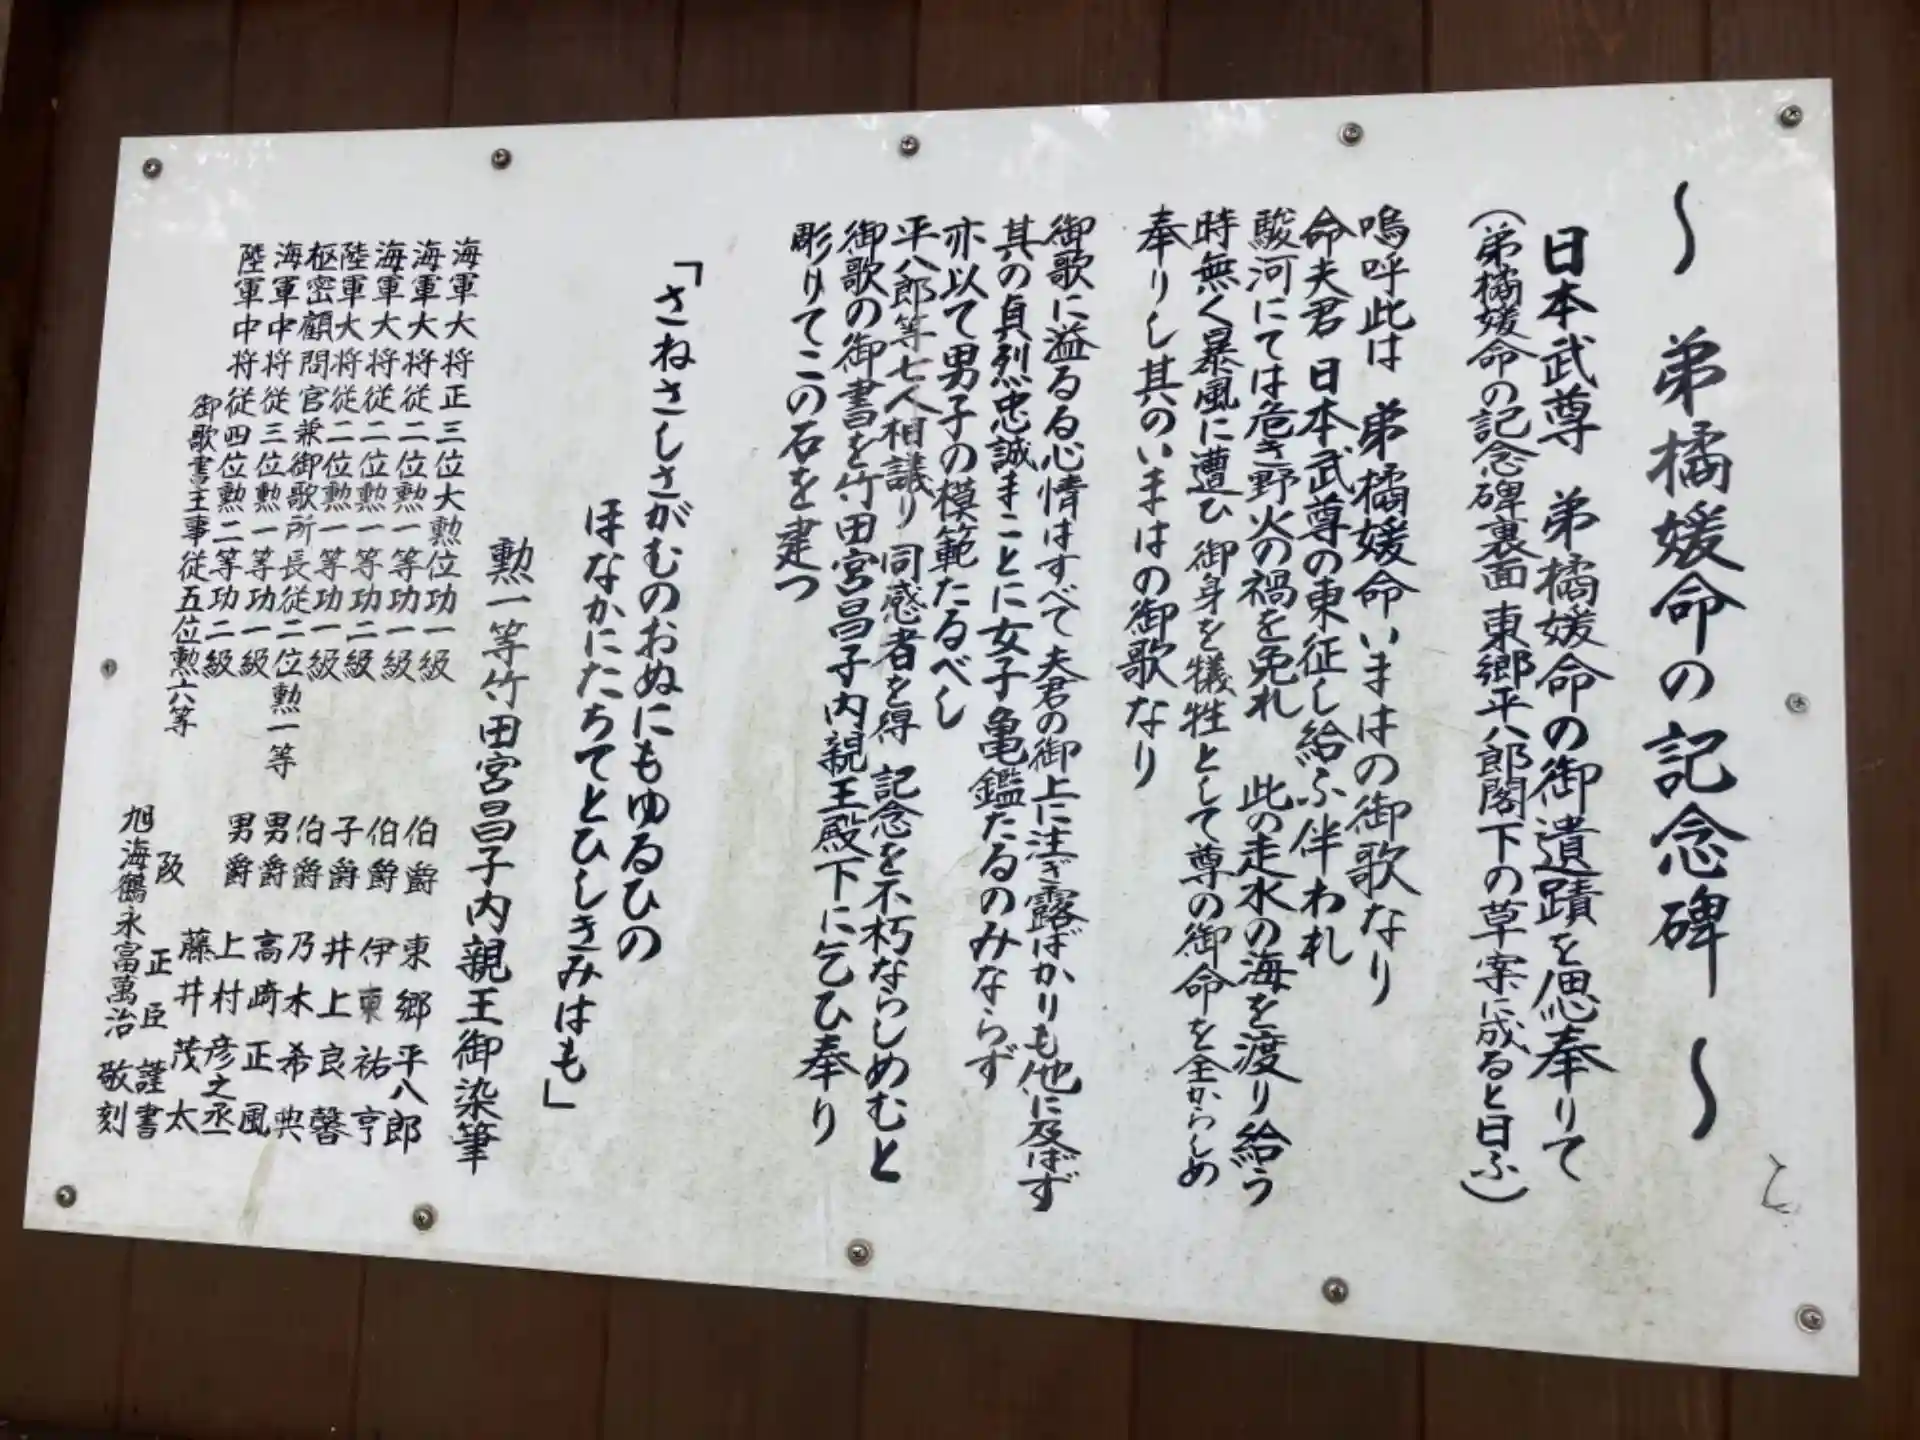 〜 弟橘媛命の記念碑 〜
日本武尊 弟橘媛命の御遺蹟を偲奉りて
(弟橘媛命の記念碑裏面 東郷平八郎閣下の草案に成ると曰ふ)
嗚呼此は 弟橘媛命いまはの御歌なり
命夫君 日本武尊の東征し給ふ伴われ
駿河にては危き野火の禍を免れ 此の走水の海を渡り給う
時無く暴風に遭ひ 御身を犠牲として尊の御命を全からしめ
奉りし其のいまはの御歌なり
御歌に溢るる心情はすべて夫君の御上に注ぎ露ばかりも他に及ばず
其の貞烈忠誠まことに女子亀鑑たるのみならず
亦以て男子の模範たるべし
平八郎等七人相議り 同感者を得 記念を不朽ならしめむと
御歌の御書を竹田宮昌子内親王殿下に乞ひ奉り
彫りてこの石を建つ
「さねさしさがむのおぬにもゆるひの
ほなかにたちてとひしきみはも」
勲一等竹田宮昌子内親王御染筆
海軍大将正三位大勲位功一級 伯爵 東郷平八郎
海軍大将従二位勲一等功一級 伯爵 伊東祐亨
海軍大将従二位勲一等功二級 子爵 井上良馨
陸軍大将従二位勲一等功一級 伯爵 乃木希典
枢密顧問官兼御歌所長従二位勲一等 男爵 高崎正風
海軍中将従三位勲一等功一級 男爵 上村彦之丞
陸軍中将従四位勲二等功二級 藤井茂太
御歌書主事従五位勲六等 阪正臣 謹書
旭海鶴永富萬治 敬刻